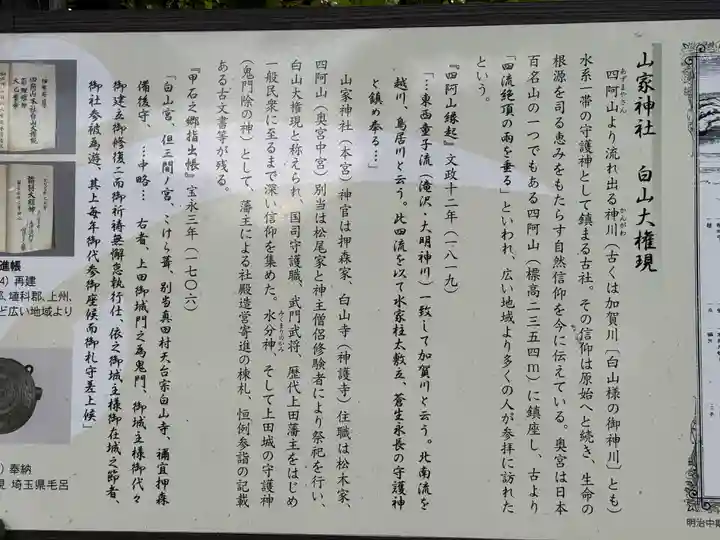 山家神社　白山大権現
四阿山より流れ出る神川（古くは加賀川［白山様の御神川］とも）
あずまやさん
かんがわ
水系一帯の守護神として鎮まる古社。その信仰は原始へと続き、生命の
根源を司る恵みをもたらす自然信仰を今に伝えている。奥宮は日本
百名山の一つでもある四阿山（標高二三五四m）に鎮座し、古より
「四流絶頂の雨を垂る」といわれ、広い地域より多くの人が参拝に訪れた
という。
『四阿山縁起』文政十二年（一八一九）
「…東西童子流（滝沢・大明神川）一致して加賀川と云う。北南流を
越川、鳥居川と云う。此四流を以て水家柱太敷立、蒼生永長の守護神
と鎮め奉る…」
山家神社（本宮）神官は押森家、白山寺（神護寺）住職は松木家、
四阿山（奥宮中宮）別当は松尾家と神主僧侶修験者により祭祀を行い、
白山大権現と称えられ、国司守護職、武門武将、歴代上田藩主をはじめ
一般民衆に至るまで深い信仰を集めた。水分神、そして上田城の守護神
みくまりのかみ
（鬼門除の神）として、藩主による社殿造営寄進の棟札、恒例参詣の記載
ある古文書等が残る。
『甲石之郷指出帳』宝永三年（一七〇六）
「白山宮、但三間ノ宮、こけら葺、別当真田村天台宗白山寺、禰宜押森
備後守、…中略…　右者、上田御城門之為鬼門、御城主様御代々
御建立御修復ニ而御祈祷無懈怠執行仕、依之御城主様御在城之節者、
御社参被為遊、其上毎年御代参御座候而御札守差上候」
進帳
4）再建
郡、埴科郡、上州、
ど広い地域より
）奉納
現 埼玉県毛呂
明治中期